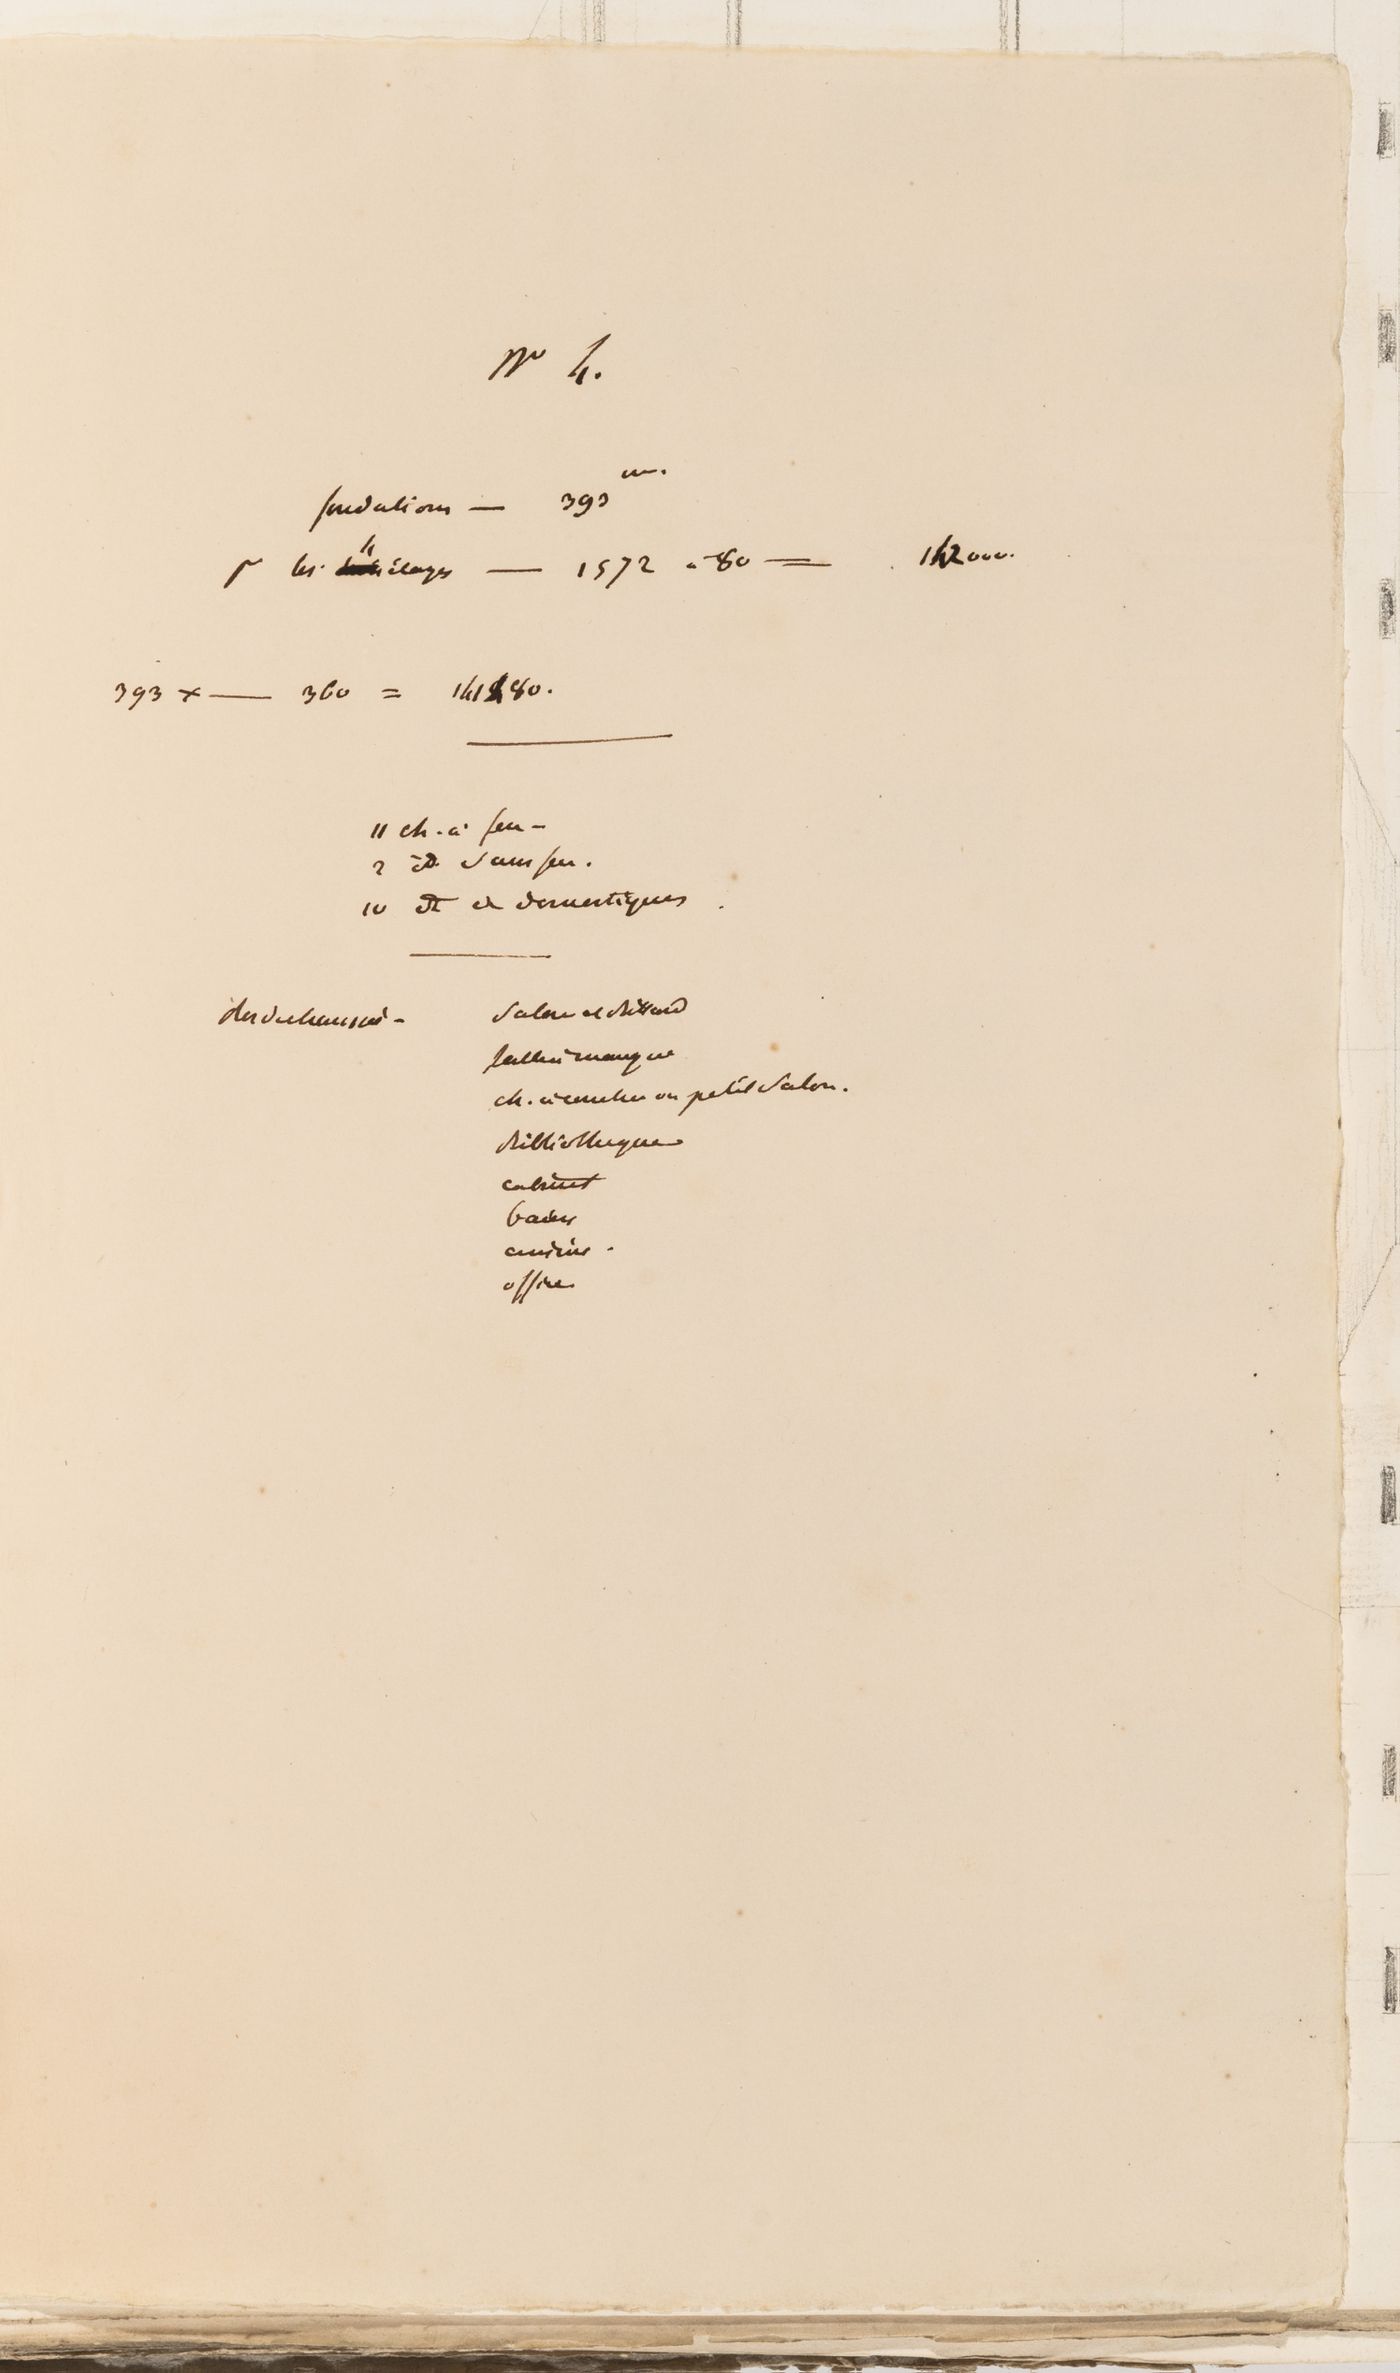 N° 4.
fondations — 393 m.
pr les 4 étages — 1572 à 80 = 142000.
393 x — 360 = 141480.
11 ch. à feu -
2 id. sans feu.
10 dt de domestiques
rez de chaussée - Salon et billard
salle à manger
ch. à coucher ou petit Salon.
Bibliothèque
cabinet
bains
cuisine.
office